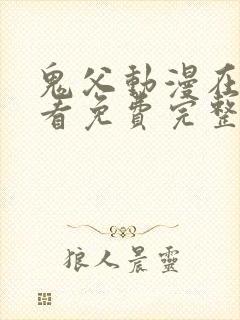 鬼父動漫在
看免費完整
狼人晨靈